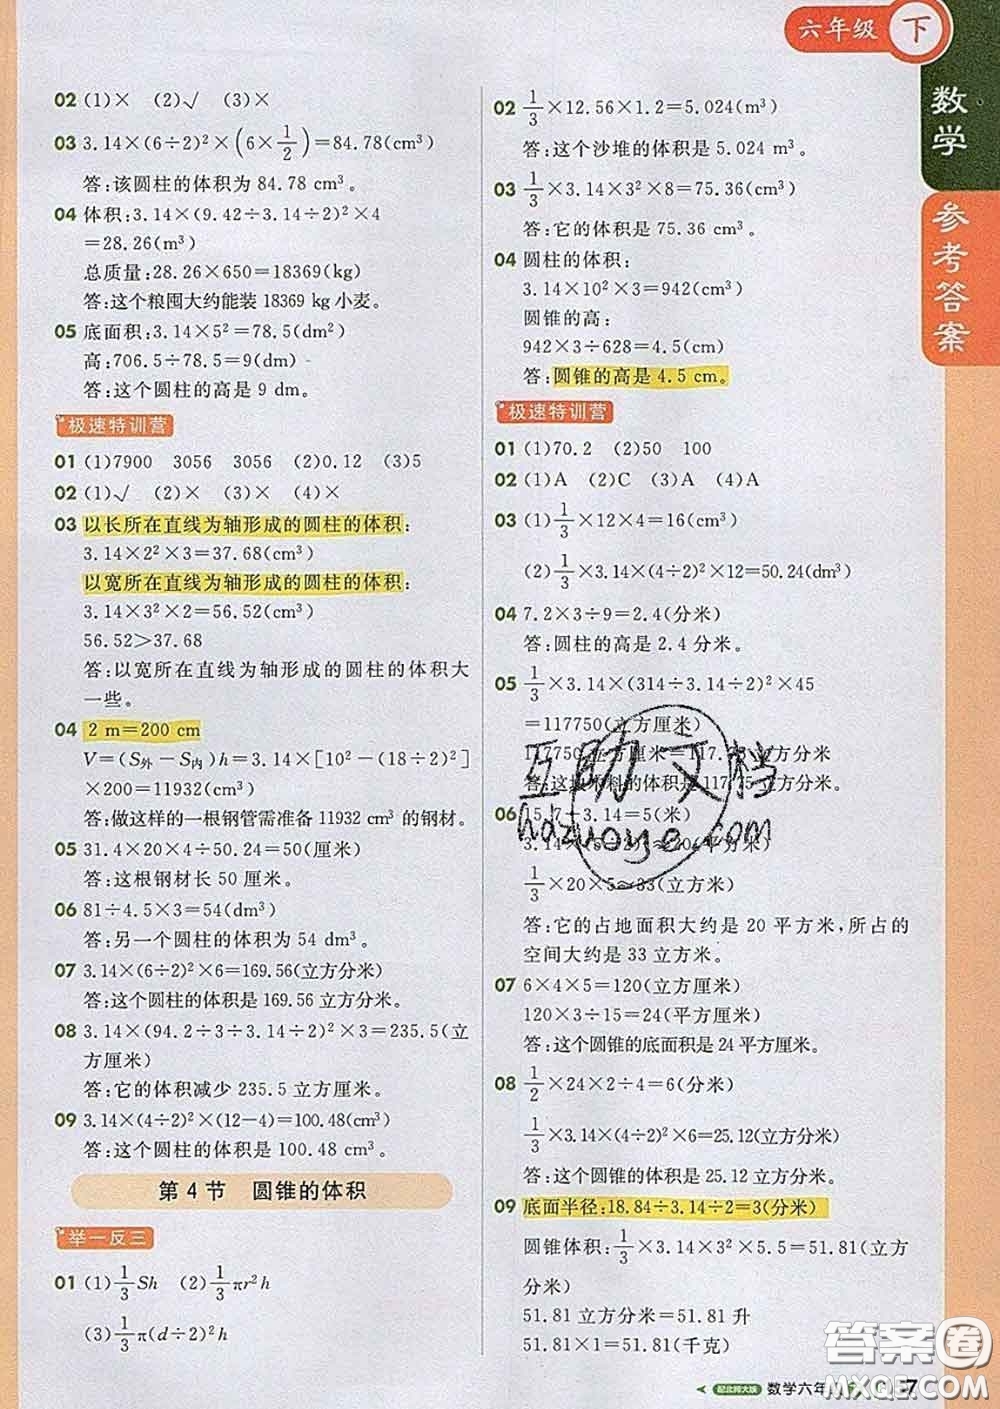 六年级 下
数学
参考答案
02 (1)× (2)√ (3)×
03 3.14×(6÷2)²×(6×1/2)=84.78(cm³)
答:该圆柱的体积为 84.78 cm³。
04 体积:3.14×(9.42÷3.14÷2)²×4
=28.26(m³)
总质量:28.26×650=18369(kg)
答:这个粮囤大约能装 18369 kg 小麦。
05 底面积:3.14×5²=78.5(dm²)
高:706.5÷78.5=9(dm)
答:这个圆柱的高是 9 dm。
极速特训营
01 (1)7900 3056 3056 (2)0.12 (3)5
02 (1)√ (2)× (3)× (4)×
03 以长所在直线为轴形成的圆柱的体积:
3.14×2²×3=37.68(cm³)
以宽所在直线为轴形成的圆柱的体积:
3.14×3²×2=56.52(cm³)
56.52>37.68
答:以宽所在直线为轴形成的圆柱的体积大
一些。
04 2 m=200 cm
V=(S外-S内)h=3.14×[10²-(18÷2)²]
×200=11932(cm³)
答:做这样的一根钢管需准备 11932 cm³ 的钢材。
05 31.4×20×4÷50.24=50(厘米)
答:这根钢材长 50 厘米。
06 81÷4.5×3=54(dm³)
答:另一个圆柱的体积为 54 dm³。
07 3.14×(6÷2)²×6=169.56(立方分米)
答:这个圆柱的体积是 169.56 立方分米。
08 3.14×(94.2÷3÷3.14÷2)²×3=235.5(立
方厘米)
答:它的体积减少 235.5 立方厘米。
09 3.14×(4÷2)²×(12-4)=100.48(cm³)
答:这个圆柱的体积是 100.48 cm³。
第 4 节 圆锥的体积
举一反三
01 (1)1/3Sh (2)1/3πr²h
(3)1/3π(d÷2)²h
02 1/3×12.56×1.2=5.024(m³)
答:这个沙堆的体积是 5.024 m³。
03 1/3×3.14×3²×8=75.36(cm³)
答:它的体积是 75.36 cm³。
04 圆柱的体积:
3.14×10²×3=942(cm³)
圆锥的高:
942×3÷628=4.5(cm)
答:圆锥的高是 4.5 cm。
极速特训营
01 (1)70.2 (2)50 100
02 (1)A (2)C (3)A (4)A
03 (1)1/3×12×4=16(cm³)
(2)1/3×3.14×(4÷2)²×12=50.24(dm³)
04 7.2×3÷9=2.4(分米)
答:圆柱的高是 2.4 分米。
05 1/3×3.14×(314÷3.14÷2)²×45
=117750(立方厘米)
117750 立方厘米=117.75 立方分米
答:这堆木料的体积是 117.75 立方分米。
互助文档
hazuoye.com
06 15.7÷3.14=5(米)
3.14×(5÷2)²≈20(平方米)
1/3×20×5≈33(立方米)
答:它的占地面积大约是 20 平方米,所占的
空间大约是 33 立方米。
07 6×4×5=120(立方厘米)
120×3÷15=24(平方厘米)
答:这个圆锥的底面积是 24 平方厘米。
08 1/2×24×2÷4=6(分米)
1/3×3.14×(4÷2)²×6=25.12(立方分米)
答:这个圆锥的体积是 25.12 立方分米。
09 底面半径:18.84÷3.14÷2=3(分米)
圆锥体积:1/3×3.14×3²×5.5=51.81(立方
分米)
51.81 立方分米=51.81 升
51.81×1=51.81(千克)
配北师大版 数学六年 7
答案圈
MXQE.COM